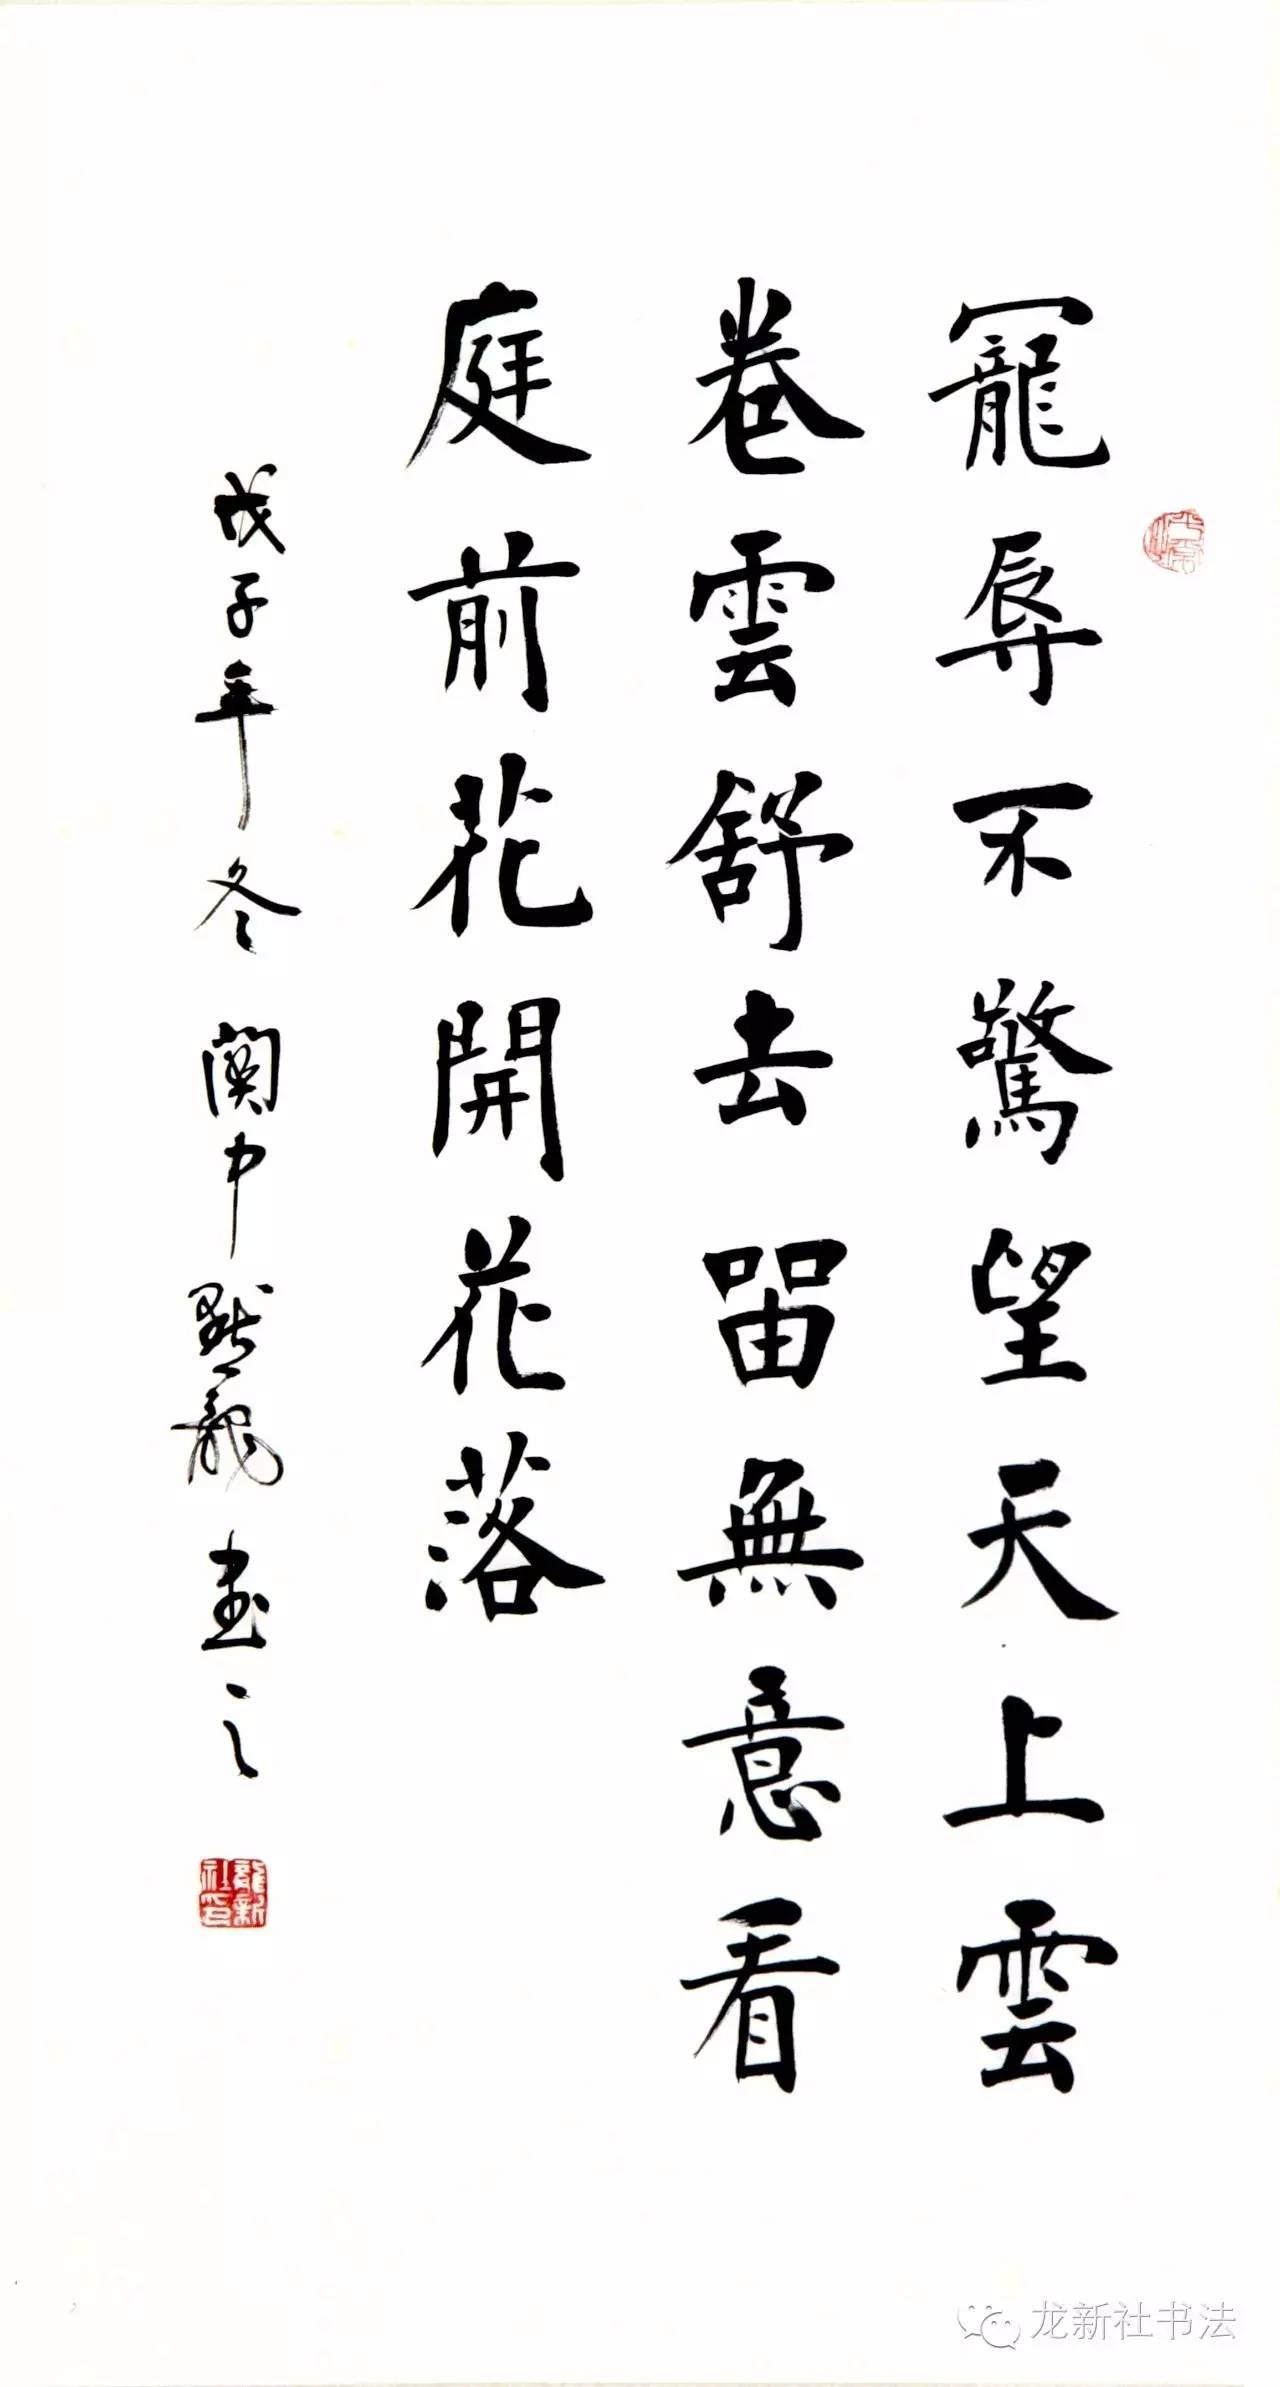 寵辱不驚望天上雲
卷雲舒去留無意看
庭前花開花落
戊子年冬關中書之
龍新社印
龙新社书法